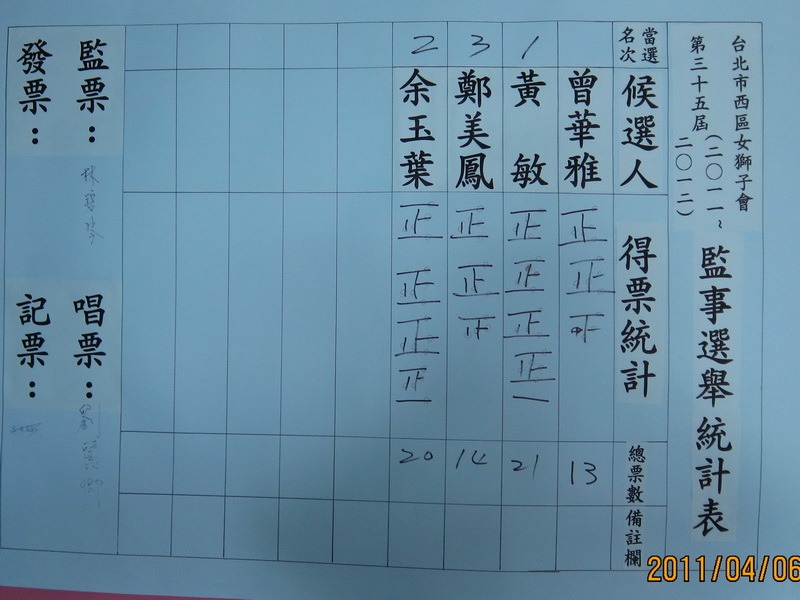 台北市西區女獅子會
第三十五屆(二〇一一~二〇一二)監事選舉統計表
當選名次 候選人 得票統計 總票數 備註欄
曾華雅 正正 13
1 黃敏 正正正正一 21
3 鄭美鳳 正正 14
2 余玉葉 正正正正 20
監票：
唱票：
發票：
記票：
2011/04/06